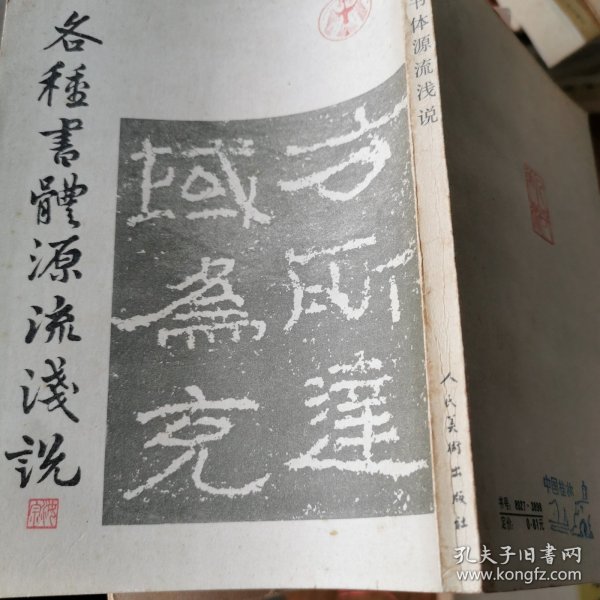 各種書體源流淺說
方所達
域為克
书体源流浅说
人民美術出版社
书号：8027·3898
定价：0·81元
中国书
孔夫子旧书网
www.kongfz.com